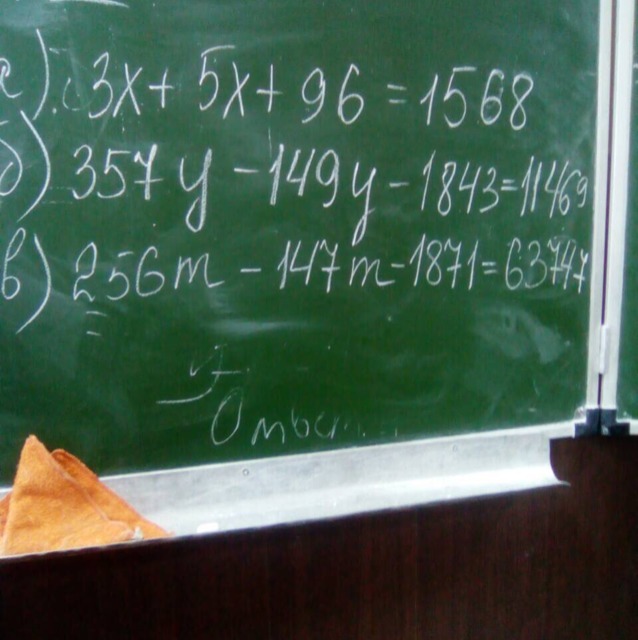 а) 3x + 5x + 96 = 1568
б) 357y - 149y - 1843 = 11469
в) 256m - 147m - 1871 = 63747
Ответ